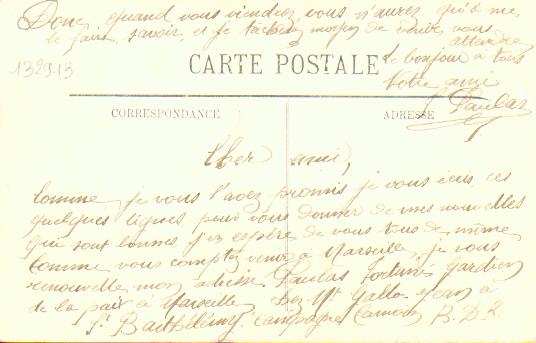 Donc quand vous viendrez, vous n'aurez qu'à me
le faire savoir, et je tacherez moyen de venir vous
attendre
Le bonjour à tous
Votre ami
Paulas
132913
CARTE POSTALE
CORRESPONDANCE
ADRESSE
Cher ami,
Comme je vous l'avez promis je vous écris ces
quelques lignes pour vous donner de mes nouvelles
qui sont bonnes j'en espère de vous tous de même
Comme vous comptez venir à Marseille, je vous
renouvelle mon adresse. Paulas Fortuné Gardien
de la paix à Marseille chez Mr Gallo Jean à
St Barthélémy. Campagne B.D.2